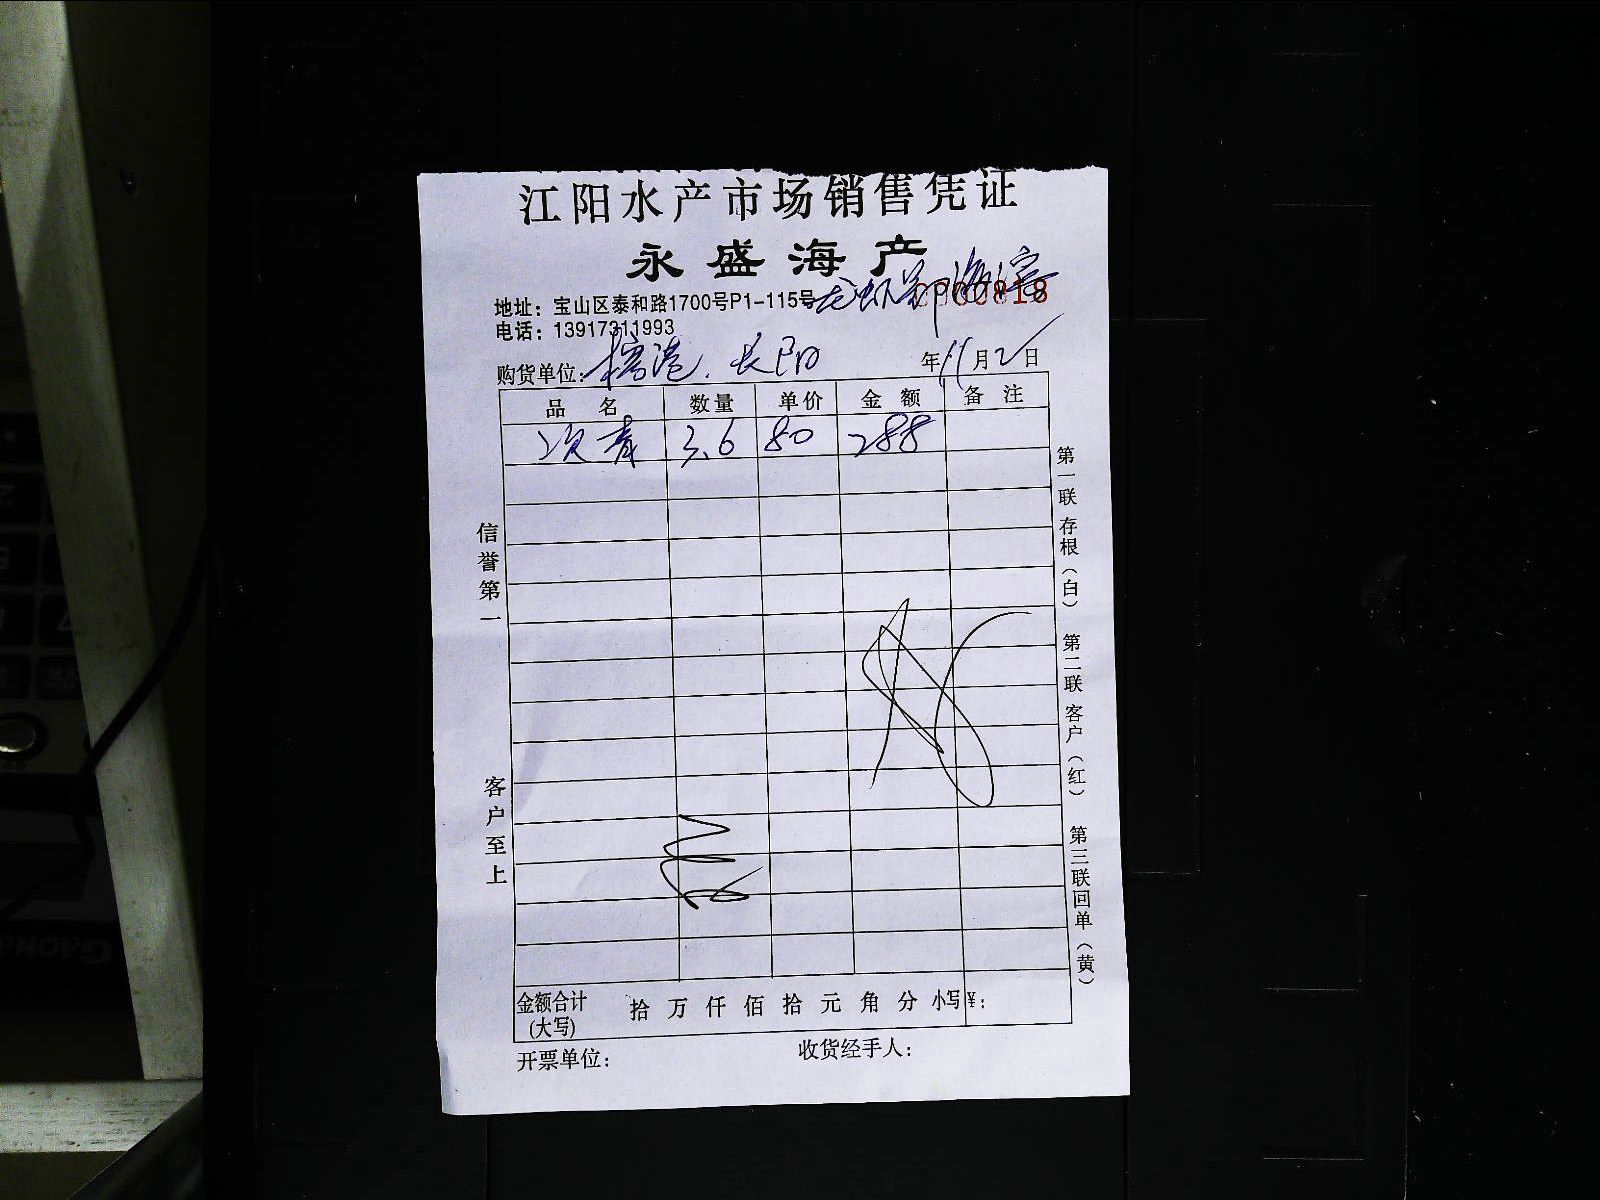 江阳水产市场销售凭证
永盛海产
地址：宝山区泰和路1700号P1-115号 龙虾郑海滨
0000818
电话：13917311993
购货单位： 长阳 年11月2日
品名 数量 单价 金额 备注
次青 3.6 80 288
信誉第一
客户至上
第一联存根（白） 第二联客户（红） 第三联回单（黄）
金额合计 拾 万 仟 佰 拾 元 角 分 小写¥：
(大写)
开票单位： 收货经手人：